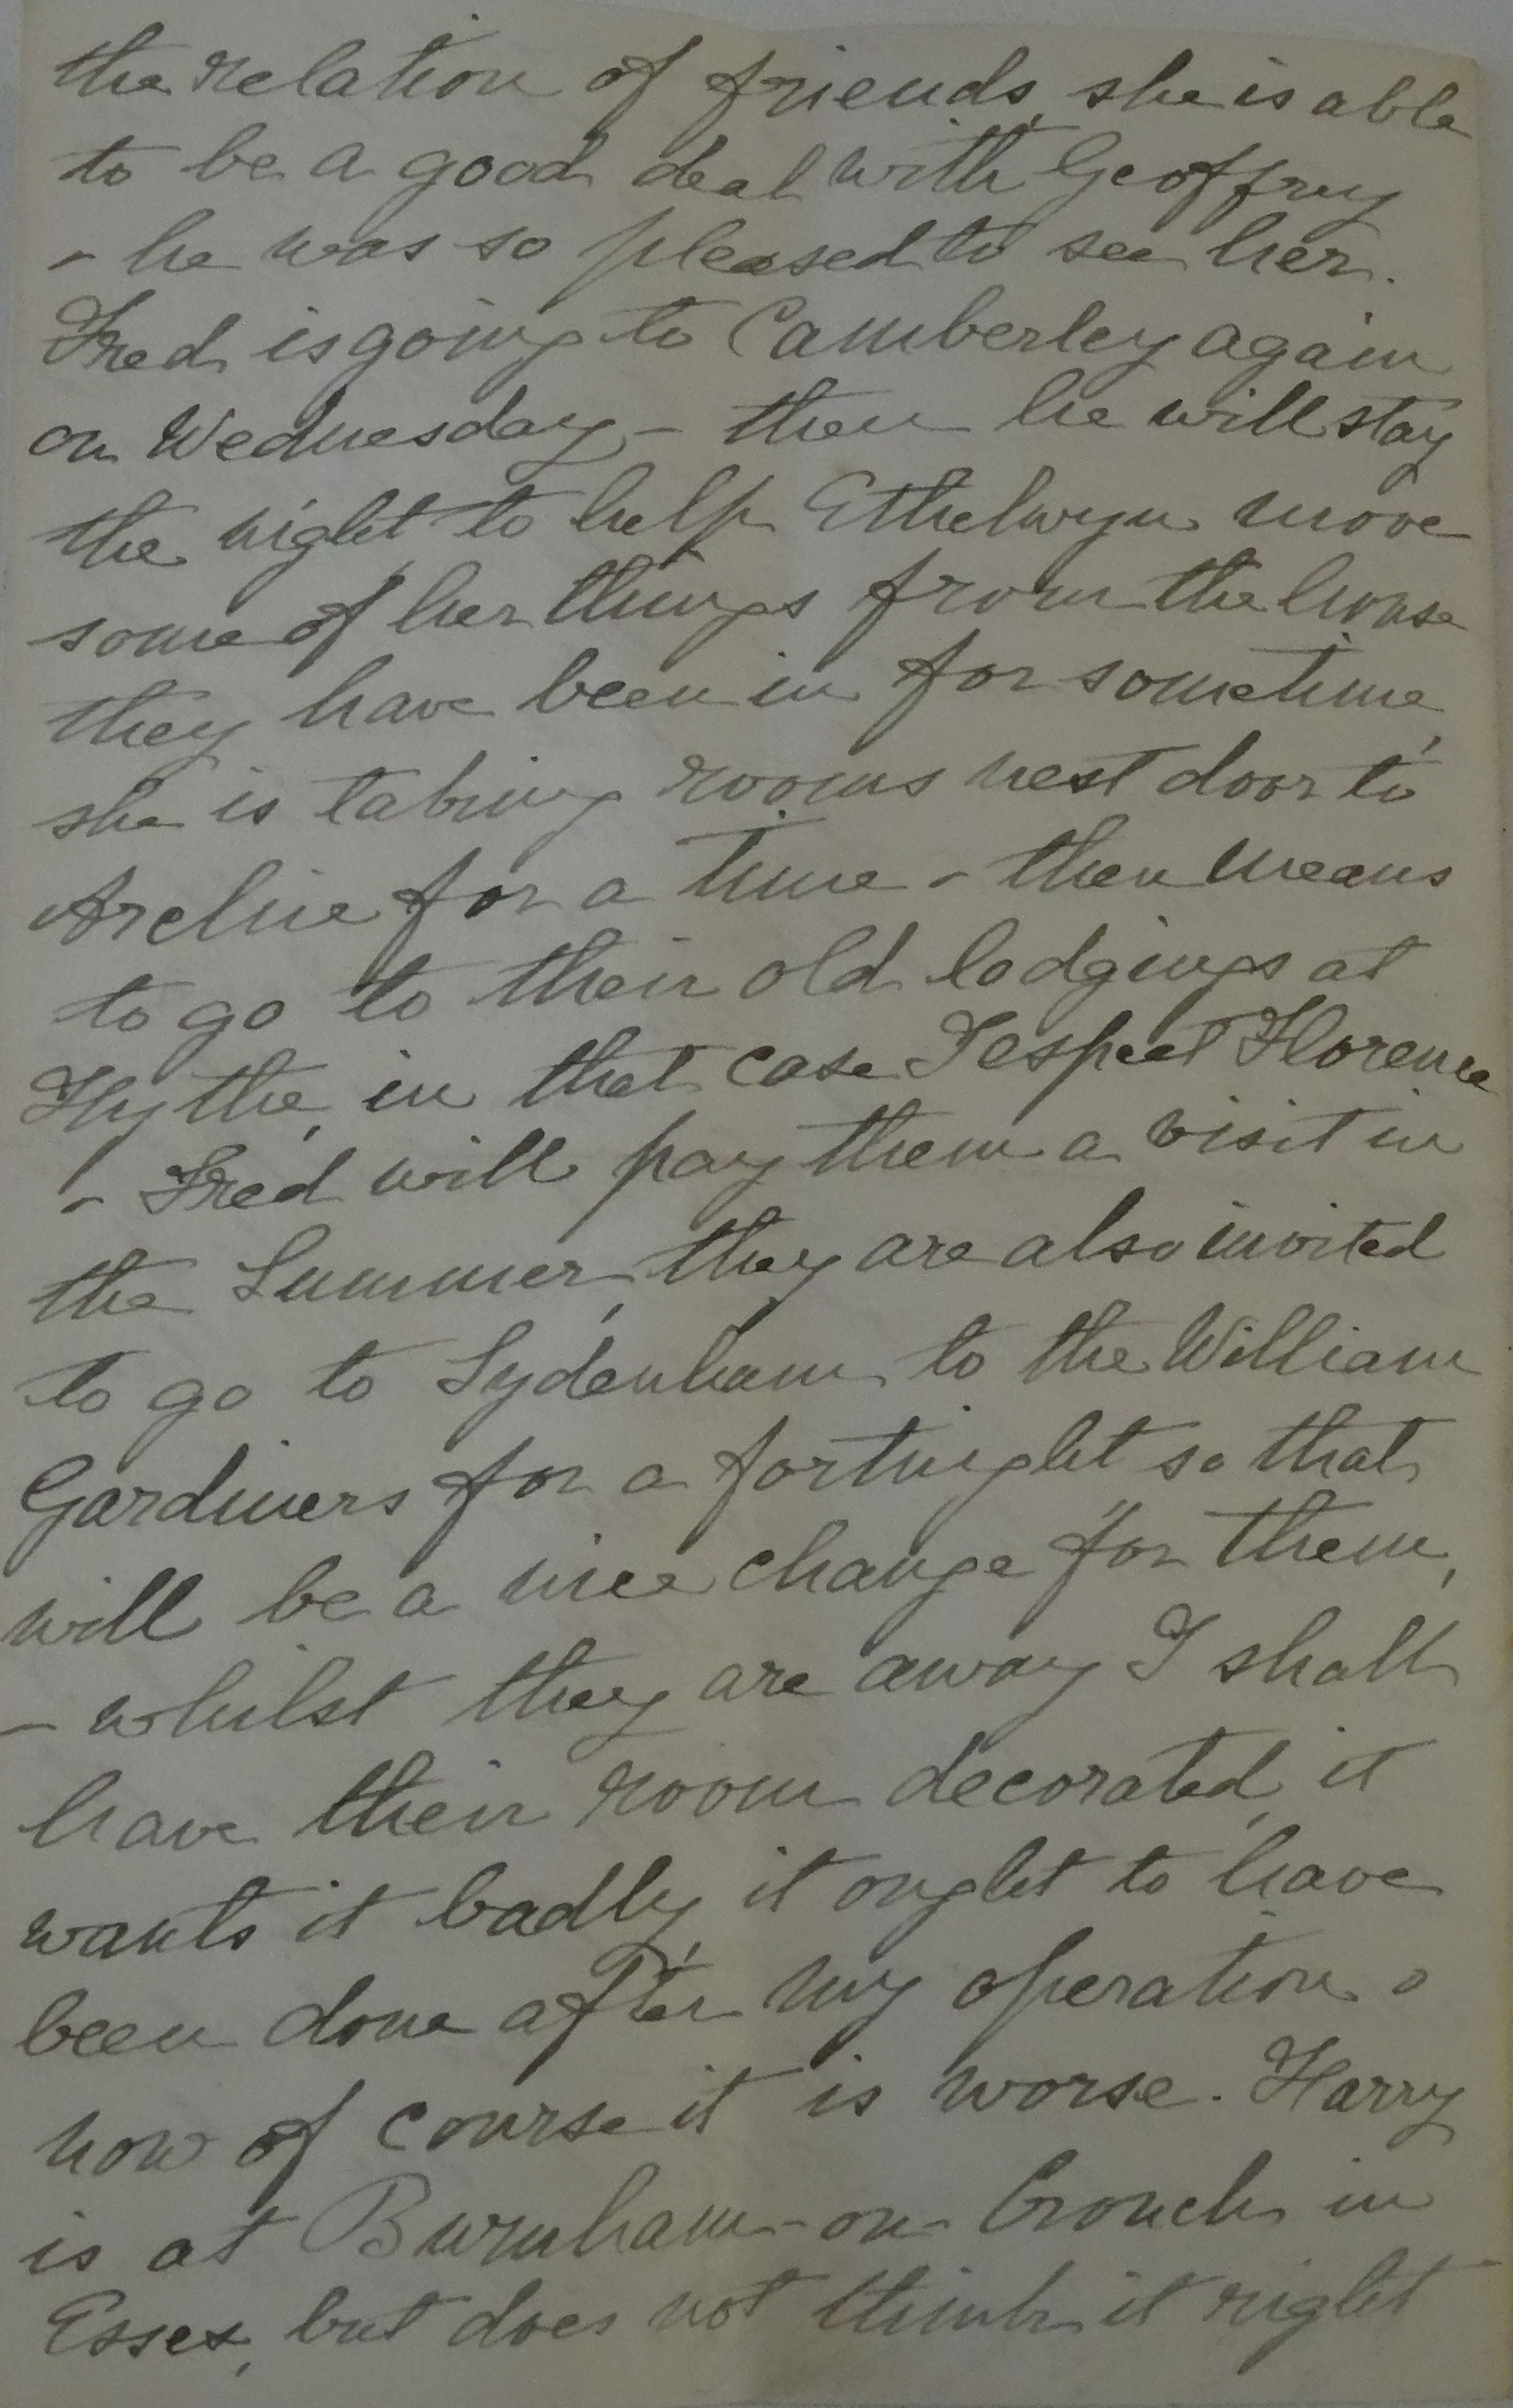 the relation of friends, she is able
to be a good deal with Geoffrey
- he was so pleased to see her.
Fred is going to Camberley again
on Wednesday - then he will stay
the night to help Ethelwyn move
some of her things from the house
they have been in for sometime,
she is taking rooms next door to
Archie for a time - then means
to go to their old lodgings at
Hythe, in that case I expect Florence
- Fred will pay them a visit in
the Summer, they are also invited
to go to Sydenham to the William
Gardiners for a fortnight so that
will be a nice change for them,
- whilst they are away I shall
have their room decorated, it
wants it badly, it ought to have
been done after my operation -
now of course it is worse. Harry
is at Burnham-on-Crouch in
Essex, but does not think it right